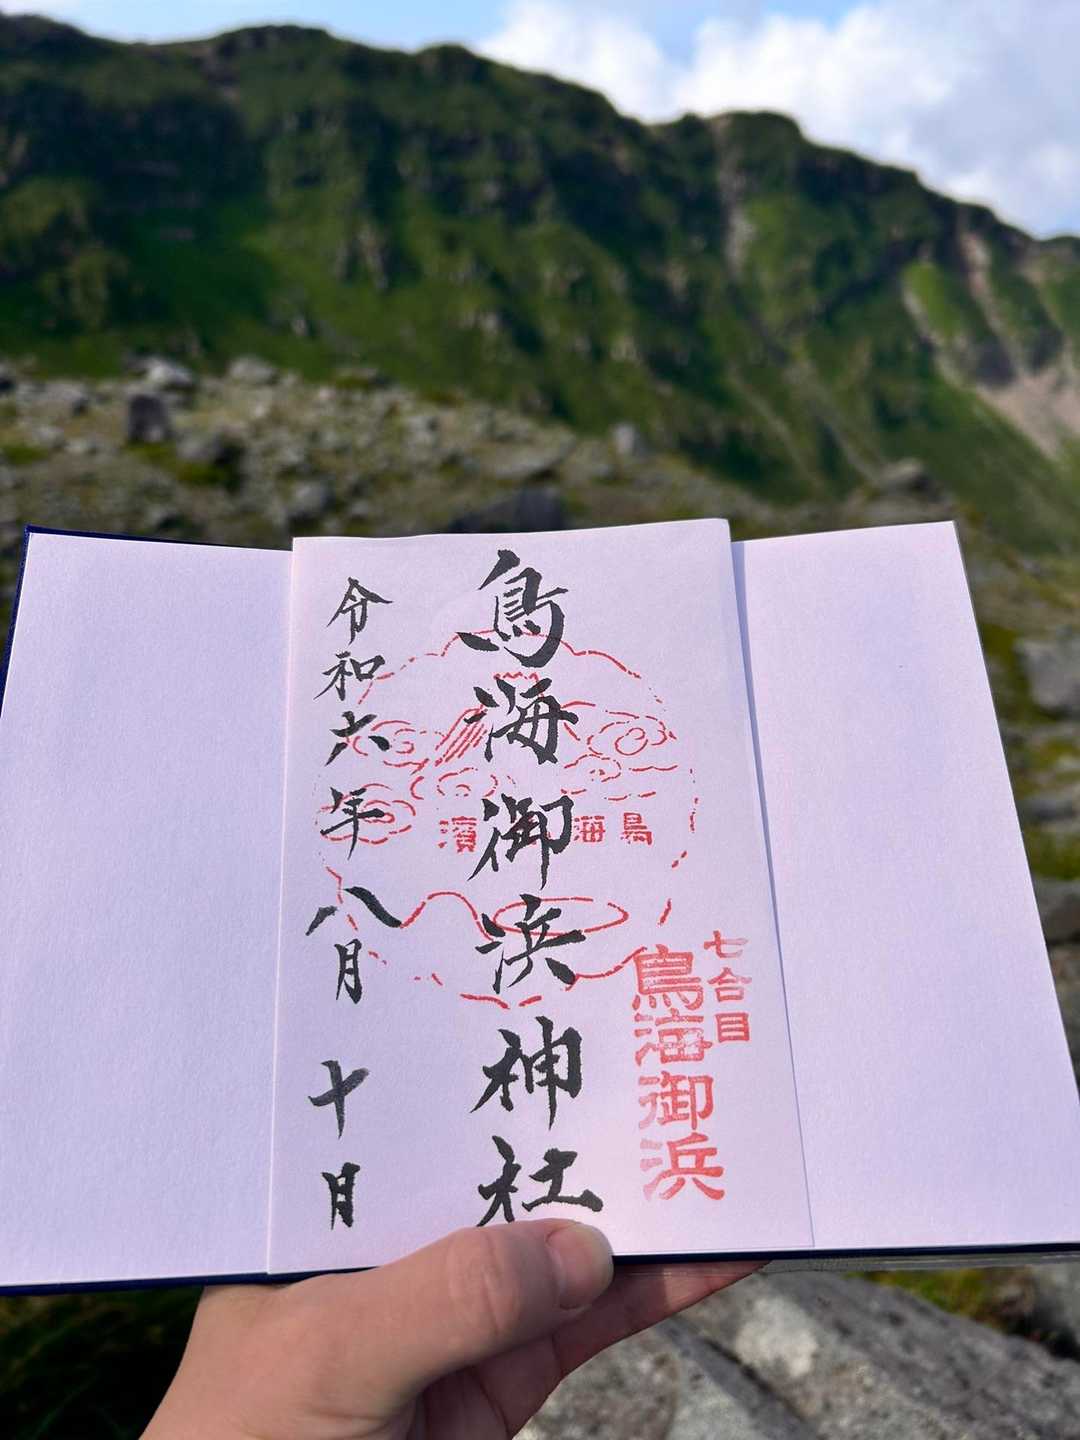 七合目
鳥海御浜
鳥海御浜神社
鳥海 濱
令和六年八月十日